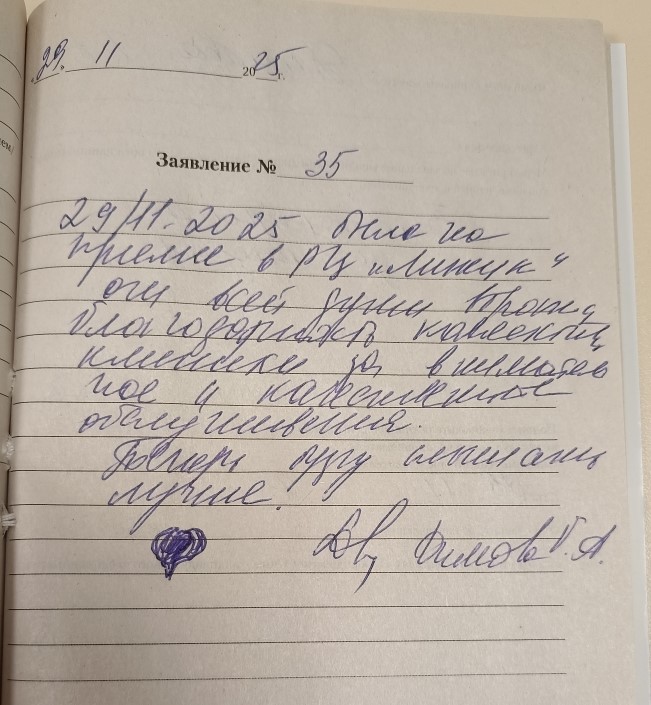 29. 11 2025 г.
Заявление № 35
29/11.2025 была на
приеме в РЦ „Линник"
от всей души прошу
благодарить коллектив
клиники за внимател
ное и качественное
обслуживания.
Теперь буду
лучше.
Димова Г. А.